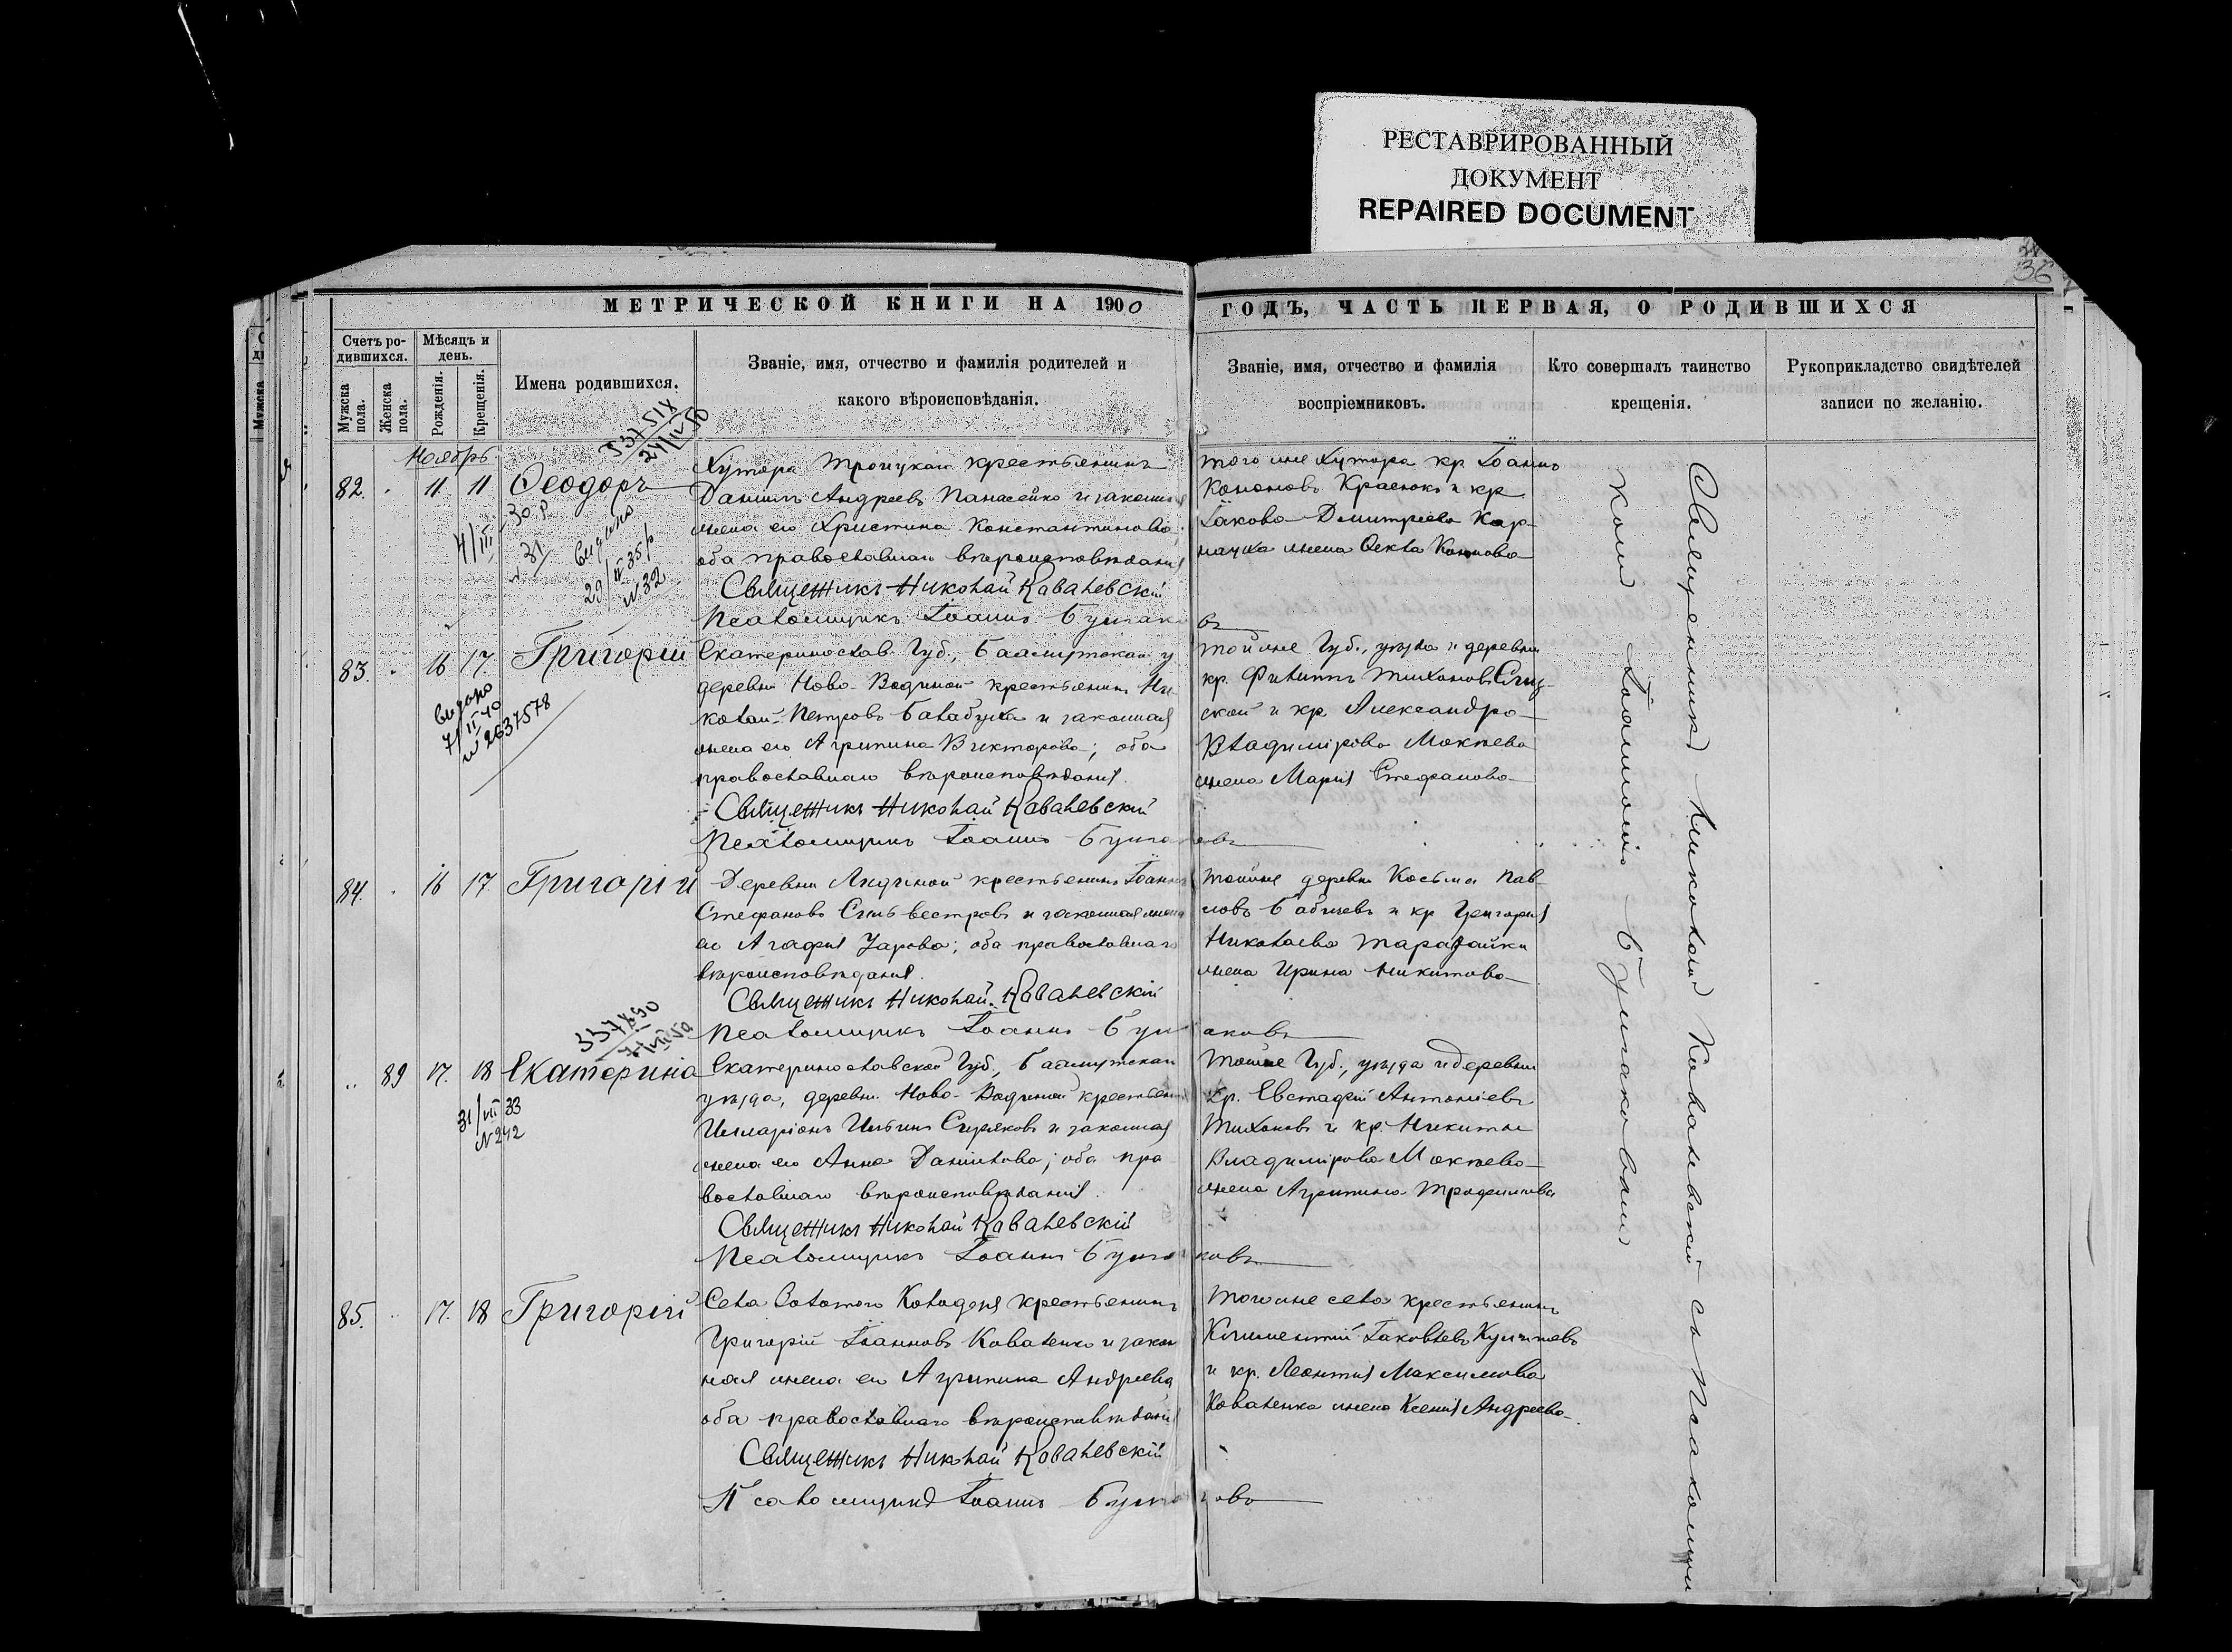 РЕСТАВРИРОВАННЫЙ
ДОКУМЕНТ
REPAIRED DOCUMENT
36
МЕТРИЧЕСКОЙ КНИГИ НА 1900
ГОДЪ, ЧАСТЬ ПЕРВАЯ, О РОДИВШИХСЯ
Счетъ ро-
дившихся.
Мужска
пола.
Женска
пола.
Мѣсяцъ и
день.
Рожденія.
Крещенія.
Имена родившихся.
Званіе, имя, отчество и фамилія родителей и
какого вѣроисповѣданія.
Званіе, имя, отчество и фамилія
воспріемниковъ.
Кто совершалъ таинство
крещенія.
Рукоприкладство свидѣтелей
записи по желанію.
Ноябрь
82. 11 11 Ѳеодоръ
Хутора Троицкаго крестьянинъ
Даніилъ Андреевъ Панасейко и законная
жена его Христина Константинова;
оба православнаго вѣроисповѣданія
Священникъ Николай Ковалевскій
Псаломщикъ Іоаннъ Бушаковъ
того же хутора кр. Іоаннъ
Кононовъ и кр.
Іакова Димитріева Кар-
жена
83. 16 17. Григорій
Видано
№ 2637578
Екатеринослав. Губ., Бахмутскаго у
деревни Ново-Водиной крестьянинъ Ни-
колай Петровъ Балабуха и законная
жена его Агрипина Викторова; оба
православнаго вѣроисповѣданія.
Священникъ Николай Ковалевскій
Псаломщикъ Іоаннъ Бушаковъ
той же Губ., уѣзда и деревни
кр. Филиппъ Тихоновъ
и кр. Александра
Владимірова Мокѣева
жена Марія Стефанова
84. 16 17. Григорій
Деревни крестьянинъ Іоаннъ
Стефановъ Сильвестровъ и законная жена
его Агафія оба православнаго
вѣроисповѣданія.
Священникъ Николай Ковалевскій
Псаломщикъ Іоаннъ Бушаковъ
той же деревни Косьма Пав-
ловъ Бабичевъ и кр. Григорія
Николаева Таратайки
жена Ирина Никитова
89 17. 18 Екатерина
31/VII 33
№ 242
Екатеринославской Губ., Бахмутскаго
уѣзда, деревни Ново-Водиной крестьянинъ
Илларіонъ Ильинъ Сиряковъ и законная
жена его Анна Даніилова; оба пра-
вославнаго вѣроисповѣданія.
Священникъ Николай Ковалевскій
Псаломщикъ Іоаннъ Бушаковъ
той же Губ., уѣзда и деревни
Кр. Евстафій Антоніевъ
Тихоновъ и кр. Никиты
Владимірова Мокѣева
жена Агрипина Трофимова
85. 17. 18 Григорій
Села Золотого Колодезя крестьянинъ
Григорій Іоанновъ Коваленко и закон
ная жена его Агрипина Андреева
оба православнаго вѣроисповѣданія
Священникъ Николай Ковалевскій
Псаломщикъ Іоаннъ Бушаковъ
того же села крестьянинъ
Климентій Іаковлевъ
и кр. Леонтія Максимова
Коваленка жена Ксенія Андреева
Священникъ Николай Ковалевскій съ Псаломщи
комъ Іоанномъ Бушаковымъ